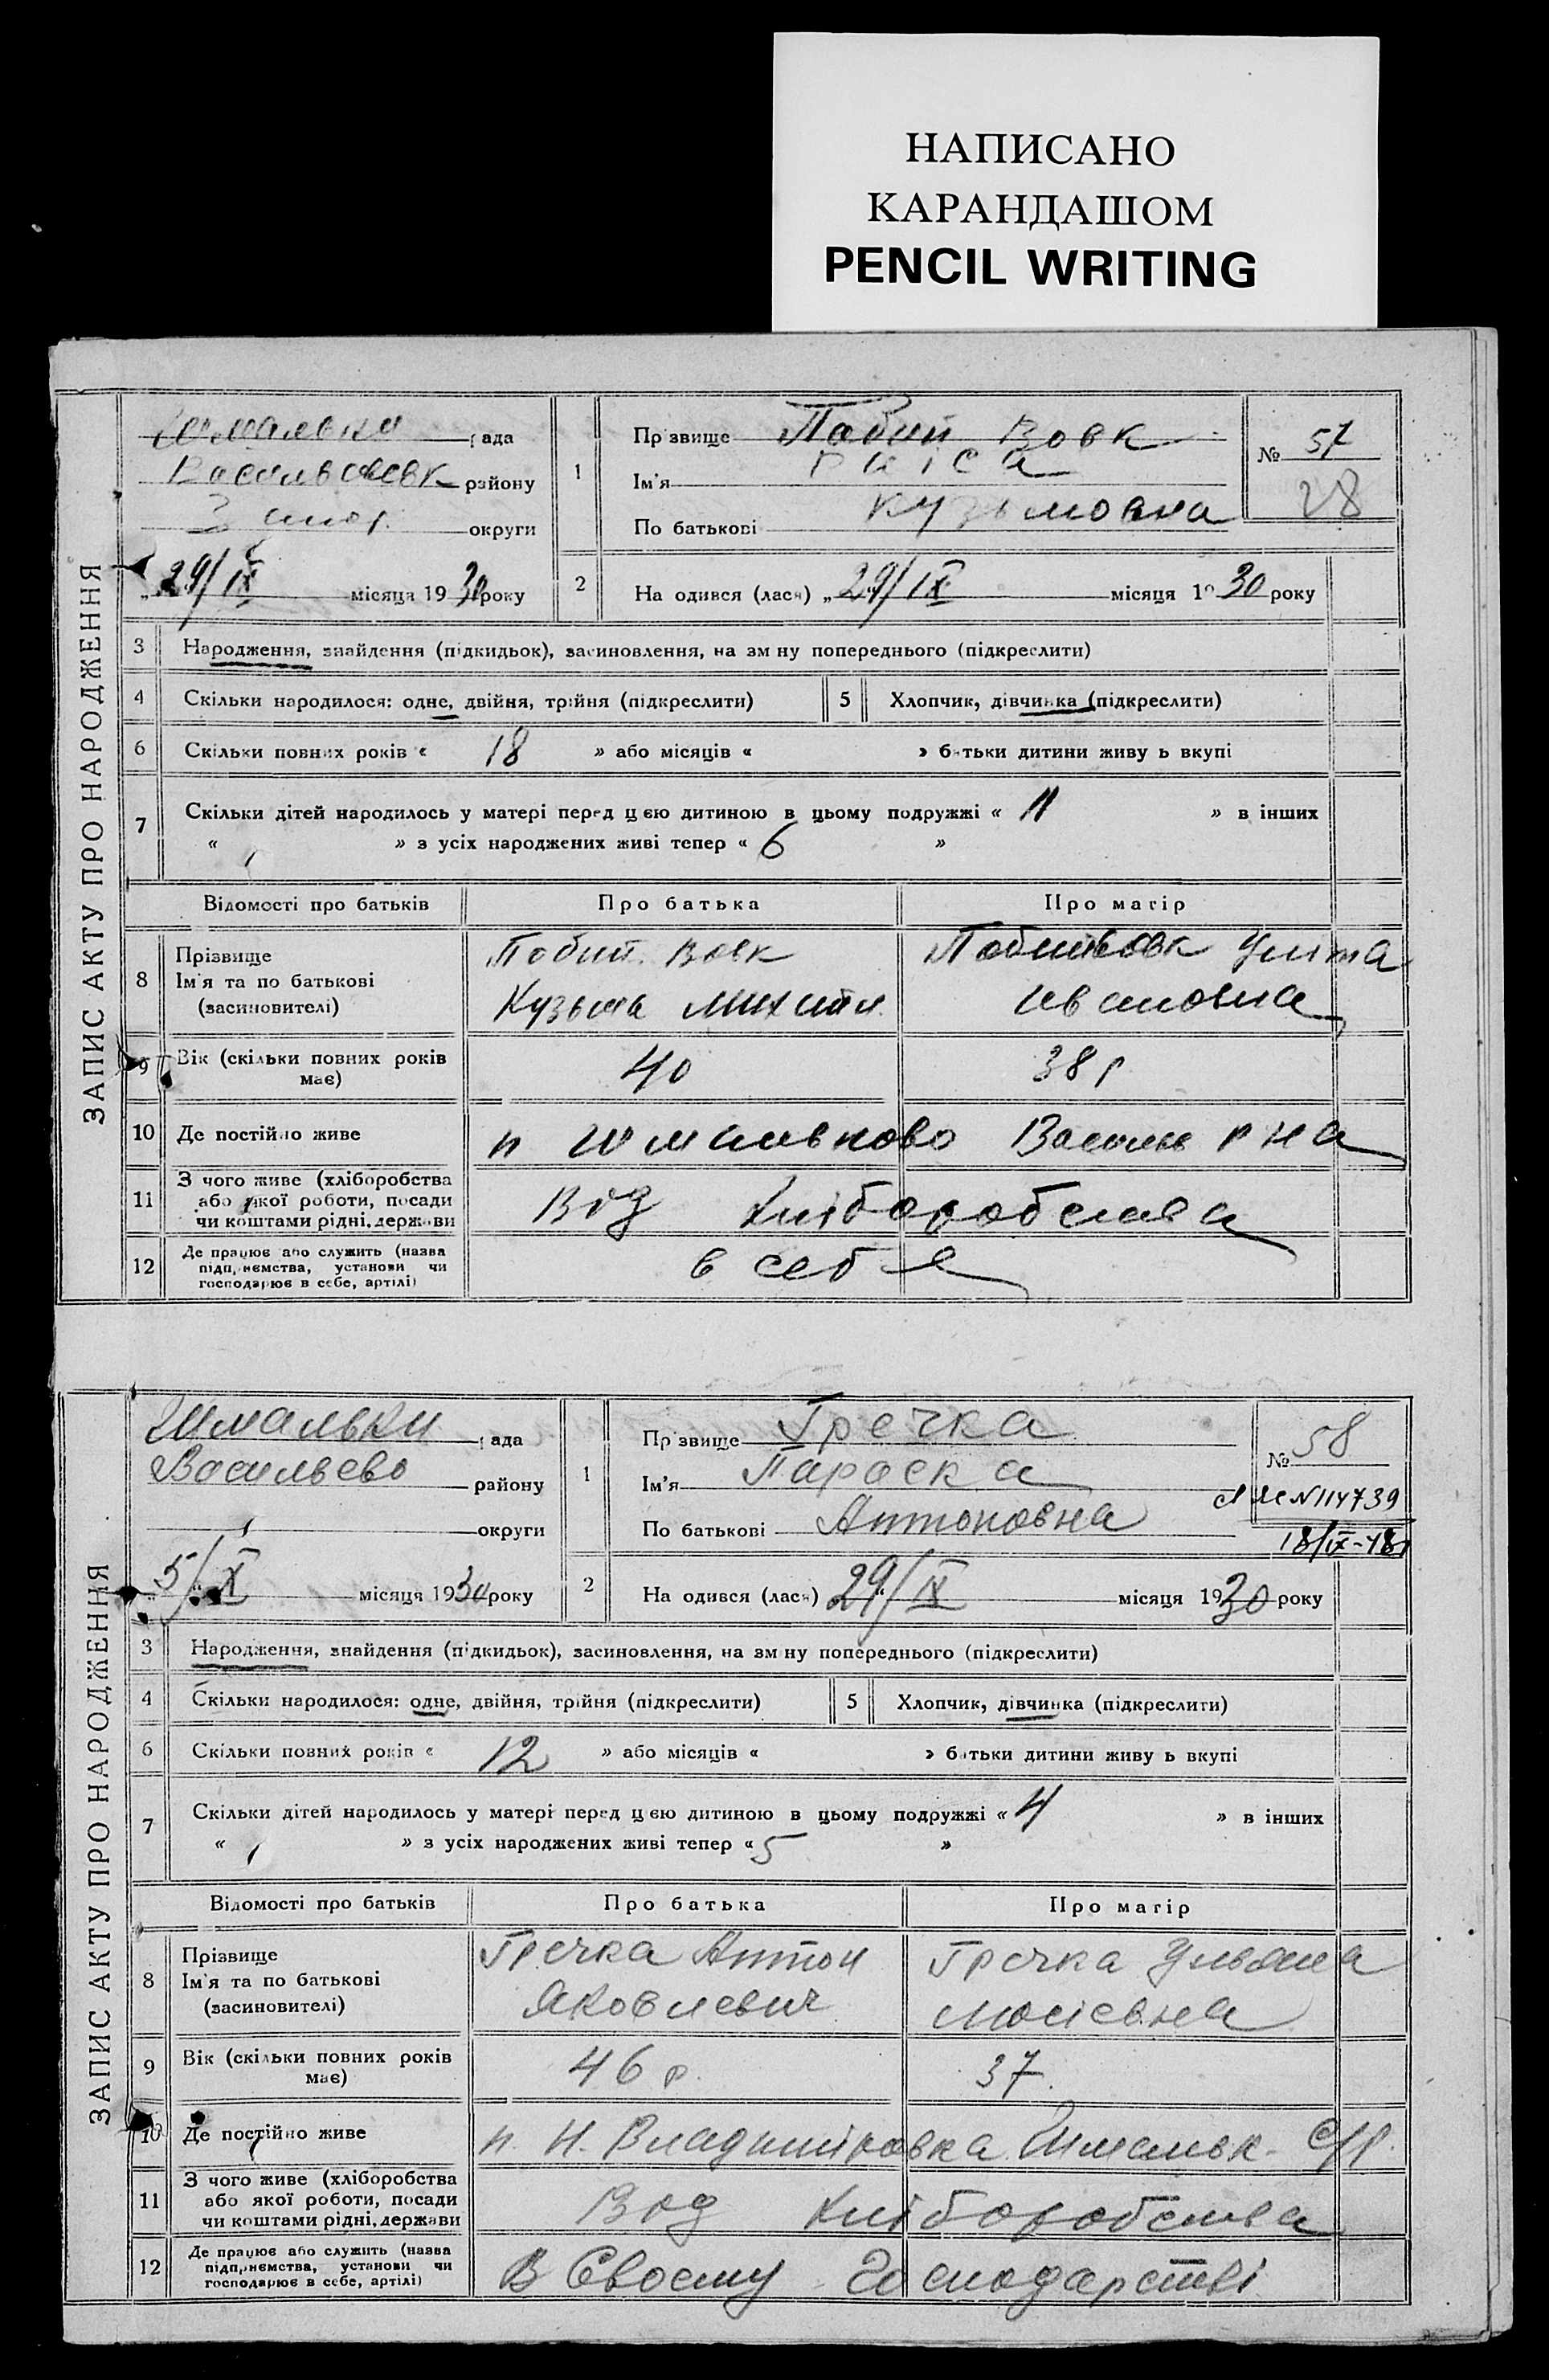 НАПИСАНО
КАРАНДАШОМ
PENCIL WRITING
ЗАПИС АКТУ ПРО НАРОДЖЕННЯ
Шмальки рада
району
округи
29/IX місяця 1930 року
1
Прізвище Побий Вовк
Ім'я Раіса
По батькові Кузьмовна
№ 57
28
2
На одився (лася) „29/IX місяця 1930 року
3 Народження, знайдення (підкидьок), засиновлення, на зм ну попереднього (підкреслити)
4 Скільки народилося: одне, двійня, трійня (підкреслити) 5 Хлопчик, дівчинка (підкреслити)
6 Скільки повних років « 18 » або місяців « » батьки дитини живу ь вкупі
7 Скільки дітей народилось у матері перед цєю дитиною в цьому подружжі « 11 » в інших
« » з усіх народжених живі тепер « 6 »
Відомості про батьків Про батька Про матір
8 Прізвище
Ім'я та по батькові
(засиновителі)
Побий Вовк
Кузьма Михайл.
Побийвовк Уліта
Ивановна
9 Вік (скільки повних років має) 40 38 р
10 Де постійно живе п Шмальково Василь р на
11 З чого живе (хліборобства
або якої роботи, посади
чи коштами рідні, держави
Від хліборобства
12 Де працює або служить (назва
підприємства, установи чи
господарює в себе, артілі)
в себя
ЗАПИС АКТУ ПРО НАРОДЖЕННЯ
Шмальки рада
Васильево району
округи
5/X місяця 1930 року
1
Прізвище Гречка
Ім'я Параска
По батькові Антоновна
№ 58
N 114739
18/IX-48
2
На одився (лася) 29/IX місяця 1930 року
3 Народження, знайдення (підкидьок), засиновлення, на зм ну попереднього (підкреслити)
4 Скільки народилося: одне, двійня, трійня (підкреслити) 5 Хлопчик, дівчинка (підкреслити)
6 Скільки повних років « 12 » або місяців « » батьки дитини живу ь вкупі
7 Скільки дітей народилось у матері перед цєю дитиною в цьому подружжі « 4 » в інших
« » з усіх народжених живі тепер « 5 »
Відомості про батьків Про батька Про матір
8 Прізвище
Ім'я та по батькові
(засиновителі)
Гречка Антон
Яковлевич
Гречка Ульяна
Мосієвна
9 Вік (скільки повних років має) 46 р. 37.
10 Де постійно живе п. Н. Владиміровка Шмальк. С/р.
11 З чого живе (хліборобства
або якої роботи, посади
чи коштами рідні, держави
Від хліборобства
12 Де працює або служить (назва
підприємства, установи чи
господарює в себе, артілі)
В Своєму Господарстві